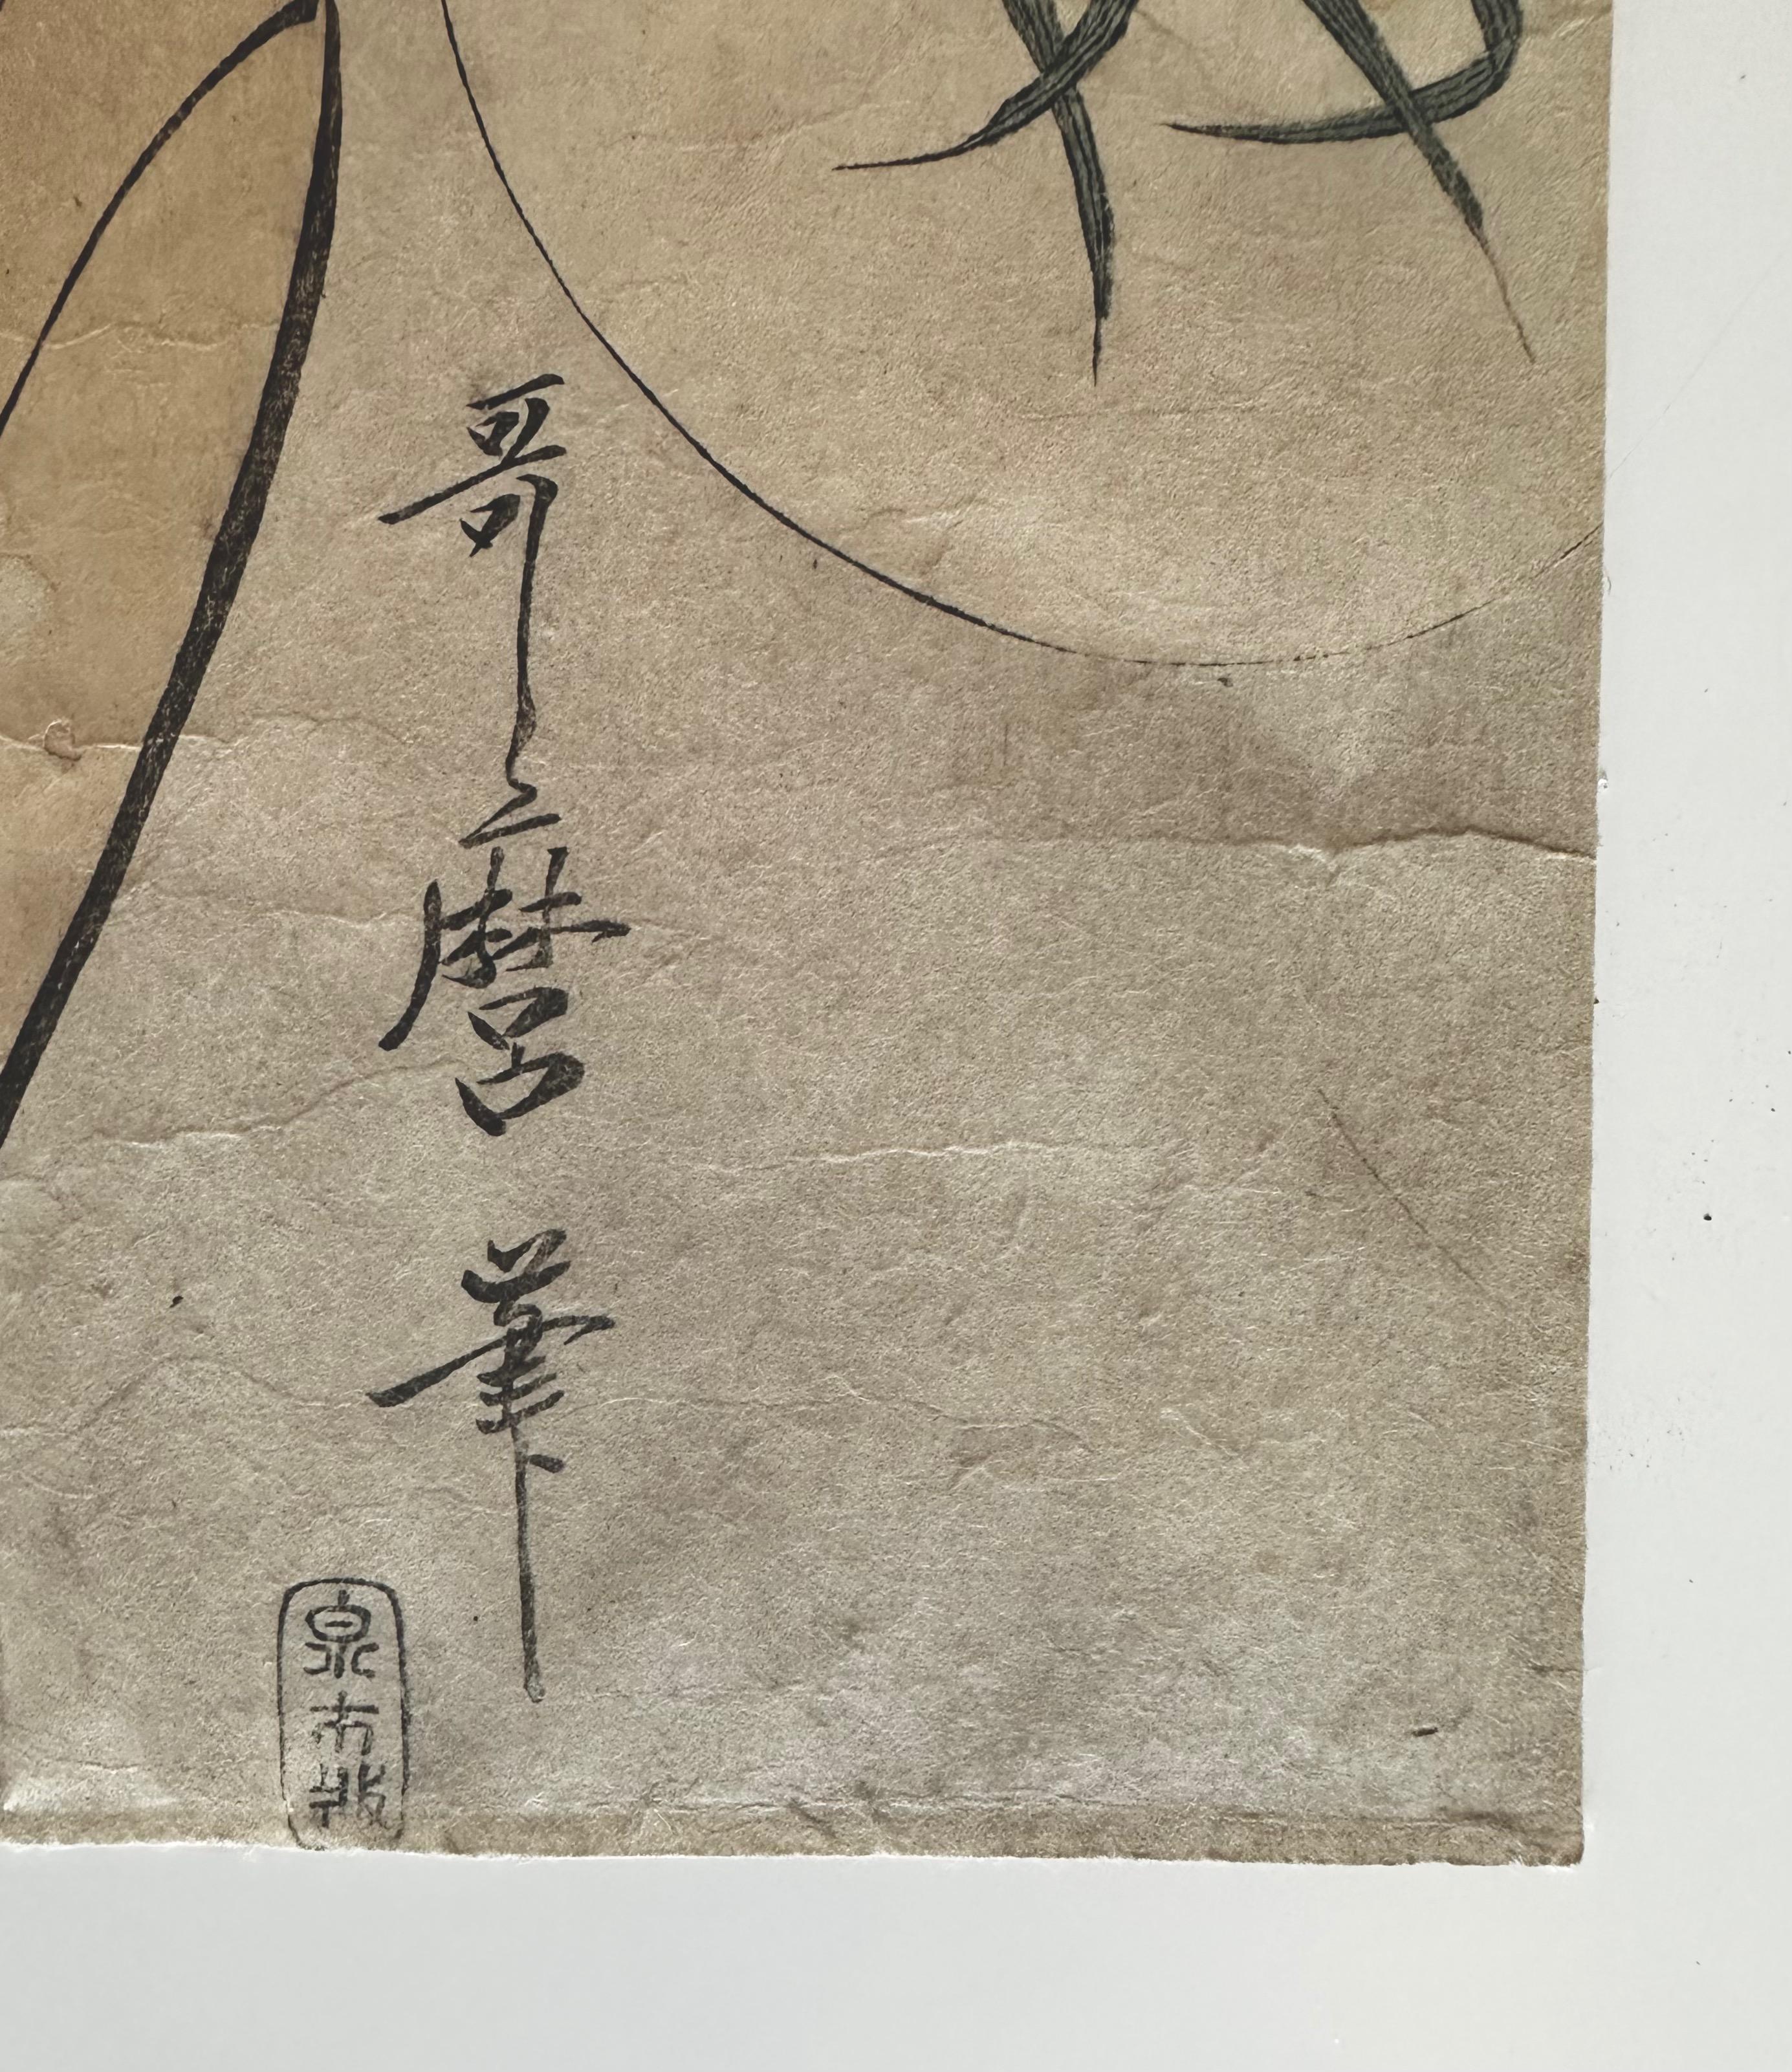 哥麿筆
泉市板